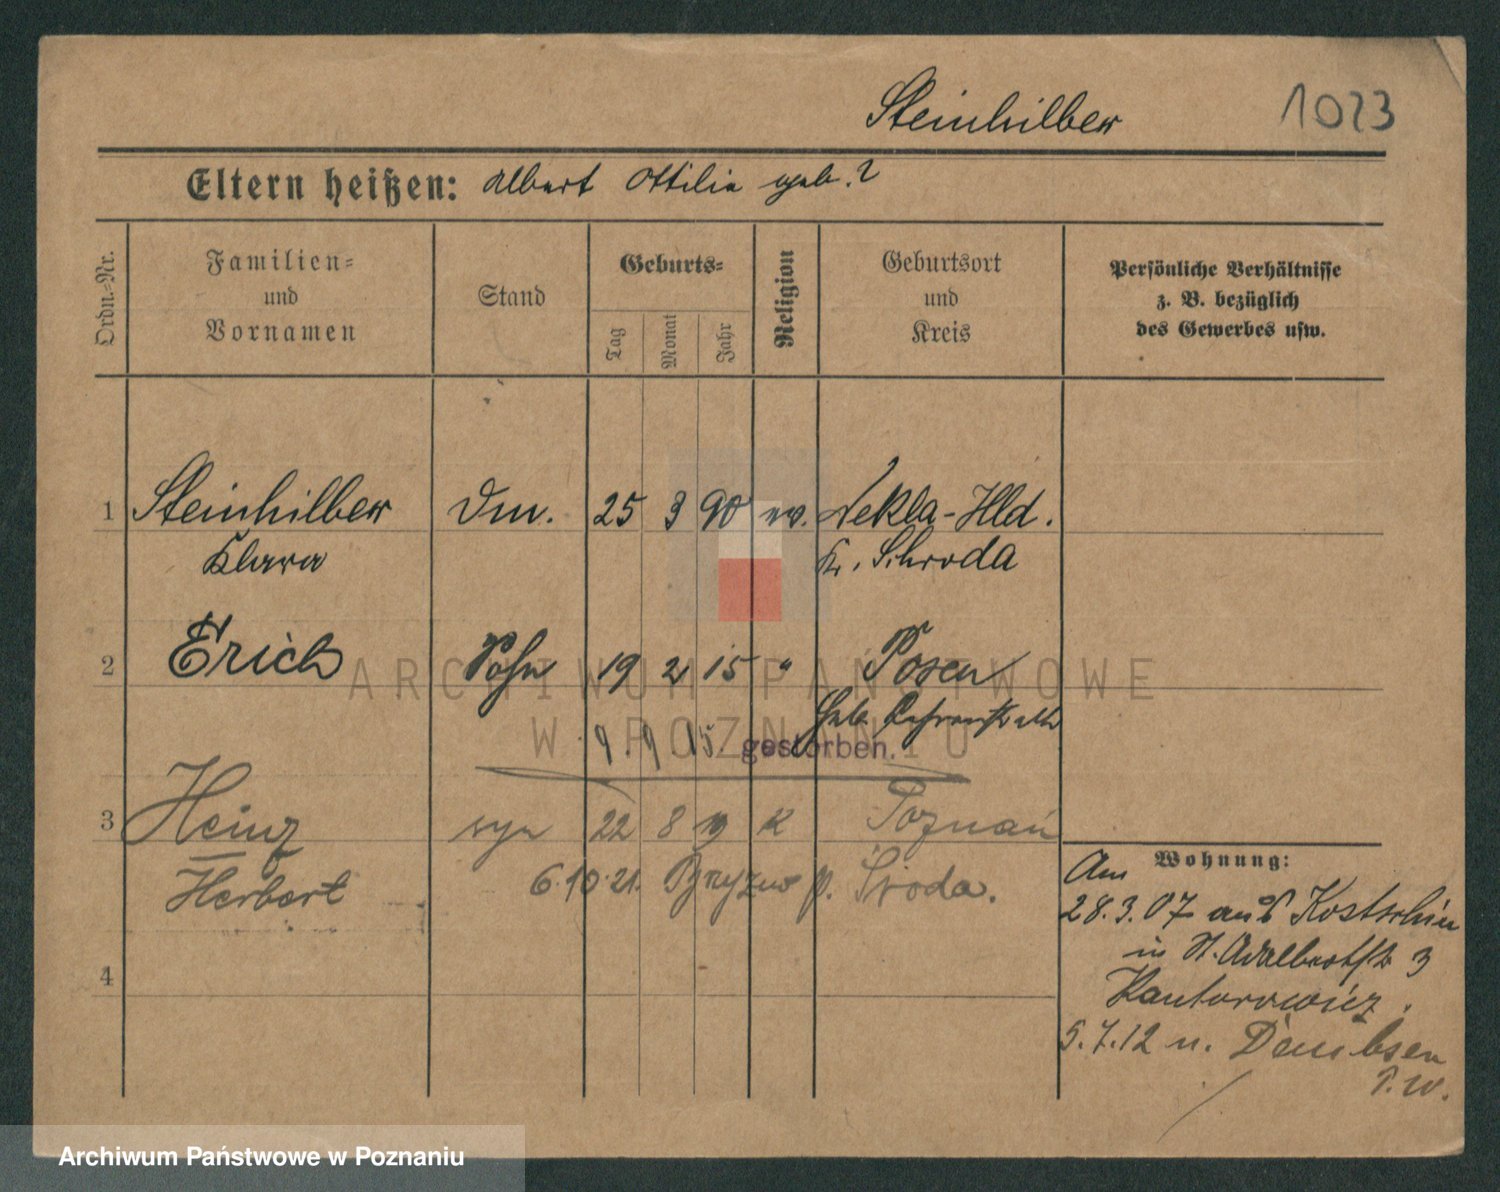 Steinhilber 1023
Eltern heißen: Albert Ottilie geb. ?
Ordn.-Nr.
Familien-
und
Vornamen
Stand
Geburts-
Tag
Monat
Jahr
Religion
Geburtsort
und
Kreis
Persönliche Verhältnisse
z. B. bezüglich
des Gewerbes usw.
1 Steinhilber Dm. 25 3 90 ev. Nekla-Hld.
Klara Kr. Schroda
2 Erich Sohn 19 2 15 " Posen
9. 9. 15. gestorben. Heb.
3 Heinz syn 22 8 19 K Poznań
Herbert 6.10.21. p. Środa.
4
Wohnung:
Am
28.3.07 aus Kostschin
in St. Adalbertstr 3
Kantorowicz.
5.7.12 n. Dembsen
P.W.
ARCHIWUM PAŃSTWOWE
W POZNANIU
Archiwum Państwowe w Poznaniu